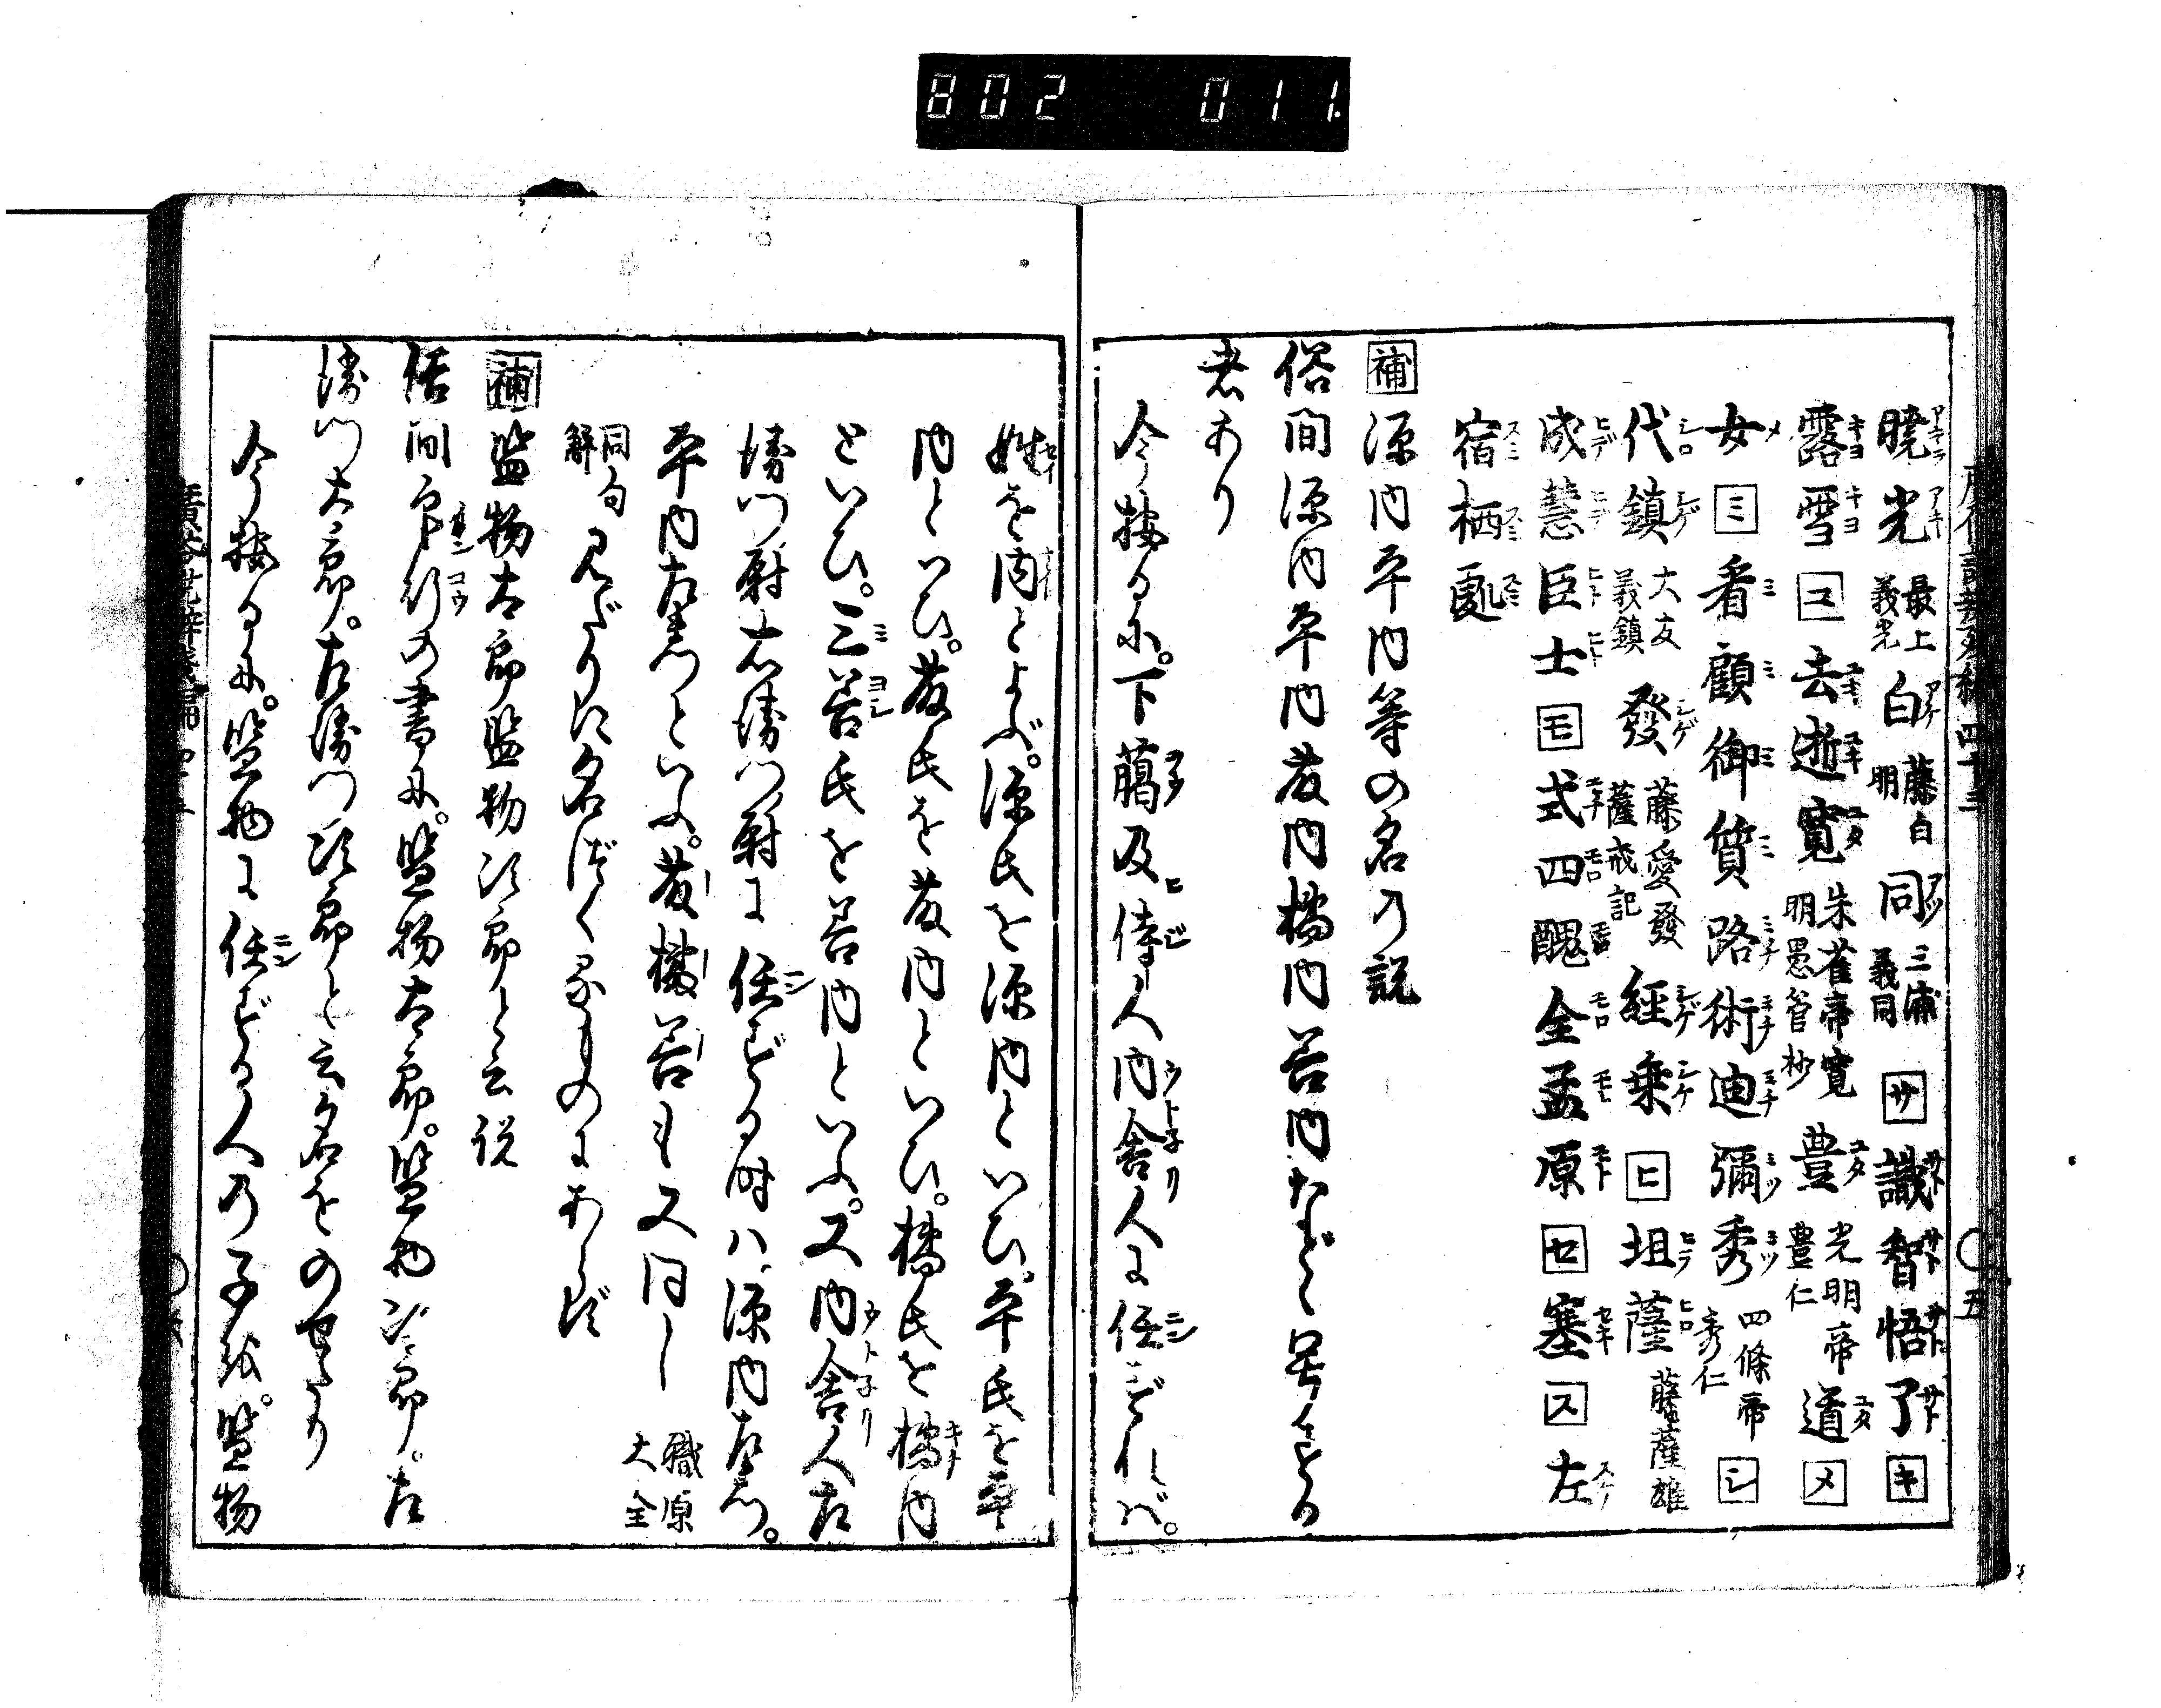 802 011
暁光最上義光白藤白明同三浦義同サ識智悟了キ
露雪ユ去逝寛朱雀帝寛明愚管抄豊光明帝豊仁道メ
女ミ看顧御質路術迪彌秀四條帝秀仁シ
代鎮大友義鎮發藤愛發薩戒記經乗ヒ坦薩藤薩雄
成慧臣士モ式四醜全孟原セ塞ス左
宿栖處
補源内平内等の名の説
俗間源内平内藤内橘内善内などゝ号する
者あり
今按るに。下﨟及侍人内舎人に任ずれば。
姓を内とよぶ。源氏を源内といひ。平氏を平
内といひ。藤氏を藤内といひ。橘氏を橘内
といひ。三善氏を善内といふ。又内舎人左
衛門尉右衛門尉に任ずる時ハ源内左衛門。
平内左衛門といふ。藤橘善も又同じ職原大全
同句解みだりに名づくるものにあらず
補監物太郎監物次郎と云説
俗間印行の書に。監物太郎。監物次郎。左
衛門太郎。左衛門次郎と云名をのせたり
今按るに。監物に任ずる人の子を。監物